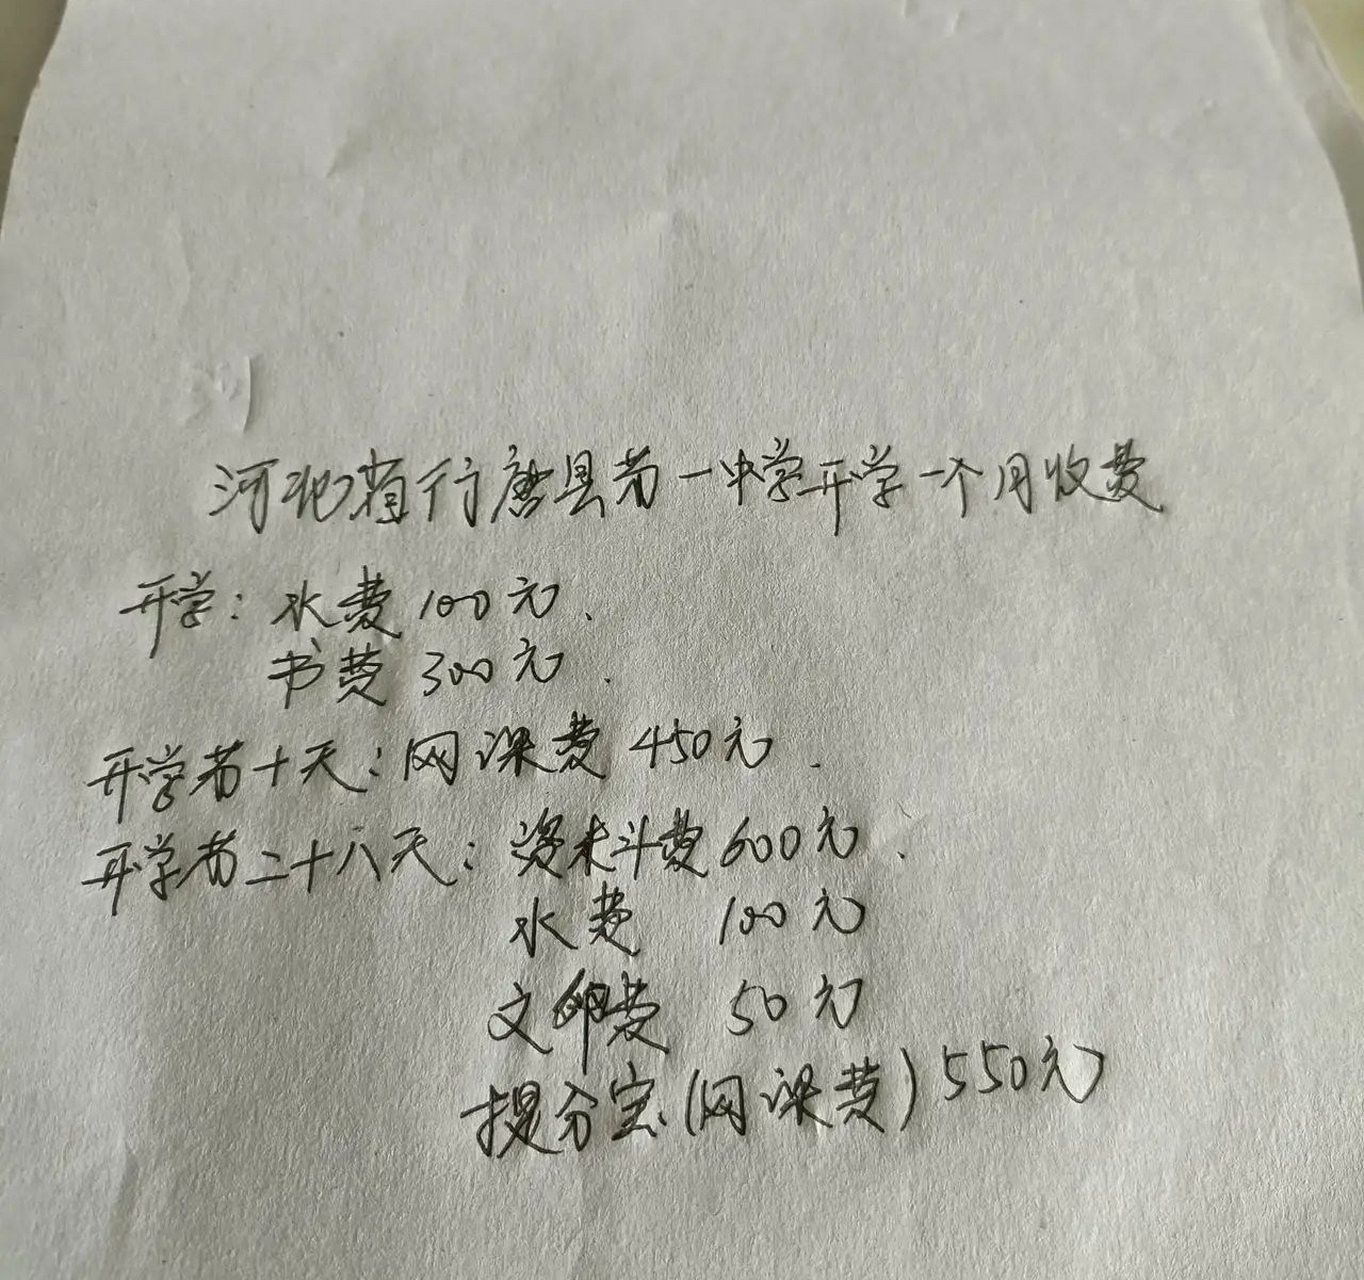 河北省行唐县第一中学开学一个月收费
开学：水费100元、
书费300元、
开学第十天：网课费450元、
开学第二十八天：资料费600元、
水费 100元
文印费 50元
提分宝(网课费)550元